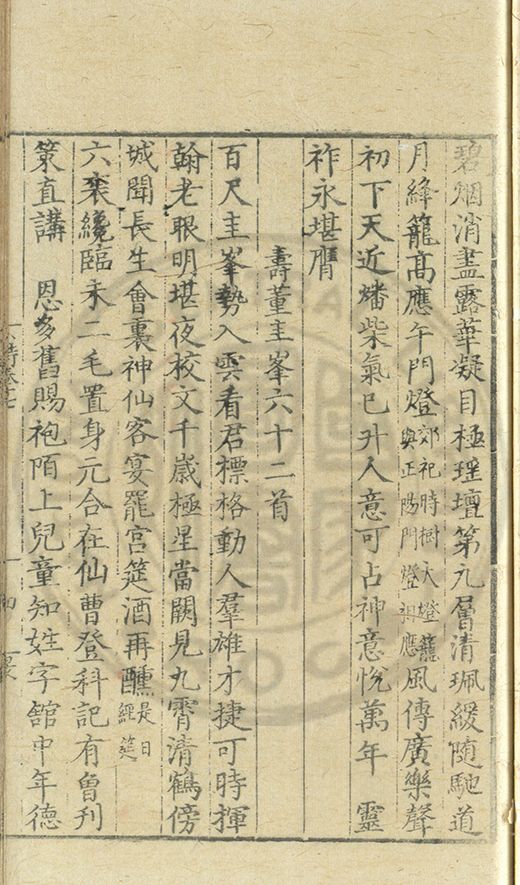 碧烟消盡露華凝目極瑤壇第九層清珮緩隨馳道
月絳籠髙應午門燈郊祀時樹大燈籠與正陽門燈相應風傳廣樂聲
初下天近燔柴氣已升人意可占神意悅萬年 靈
祚永堪膺
壽董主峯六十二首
百尺主峯勢入雲看君標格動人羣雄才捷可時揮
翰老眼明堪夜校文千嵗極星當闕見九霄清鶴傍
城聞長生會裏神仙客宴罷宮筵酒再醺是日經筵
六袠纔臨未二毛置身元合在仙曹登科記有曾刋
策直講 恩多舊賜袍陌上兒童知姓字舘中年德